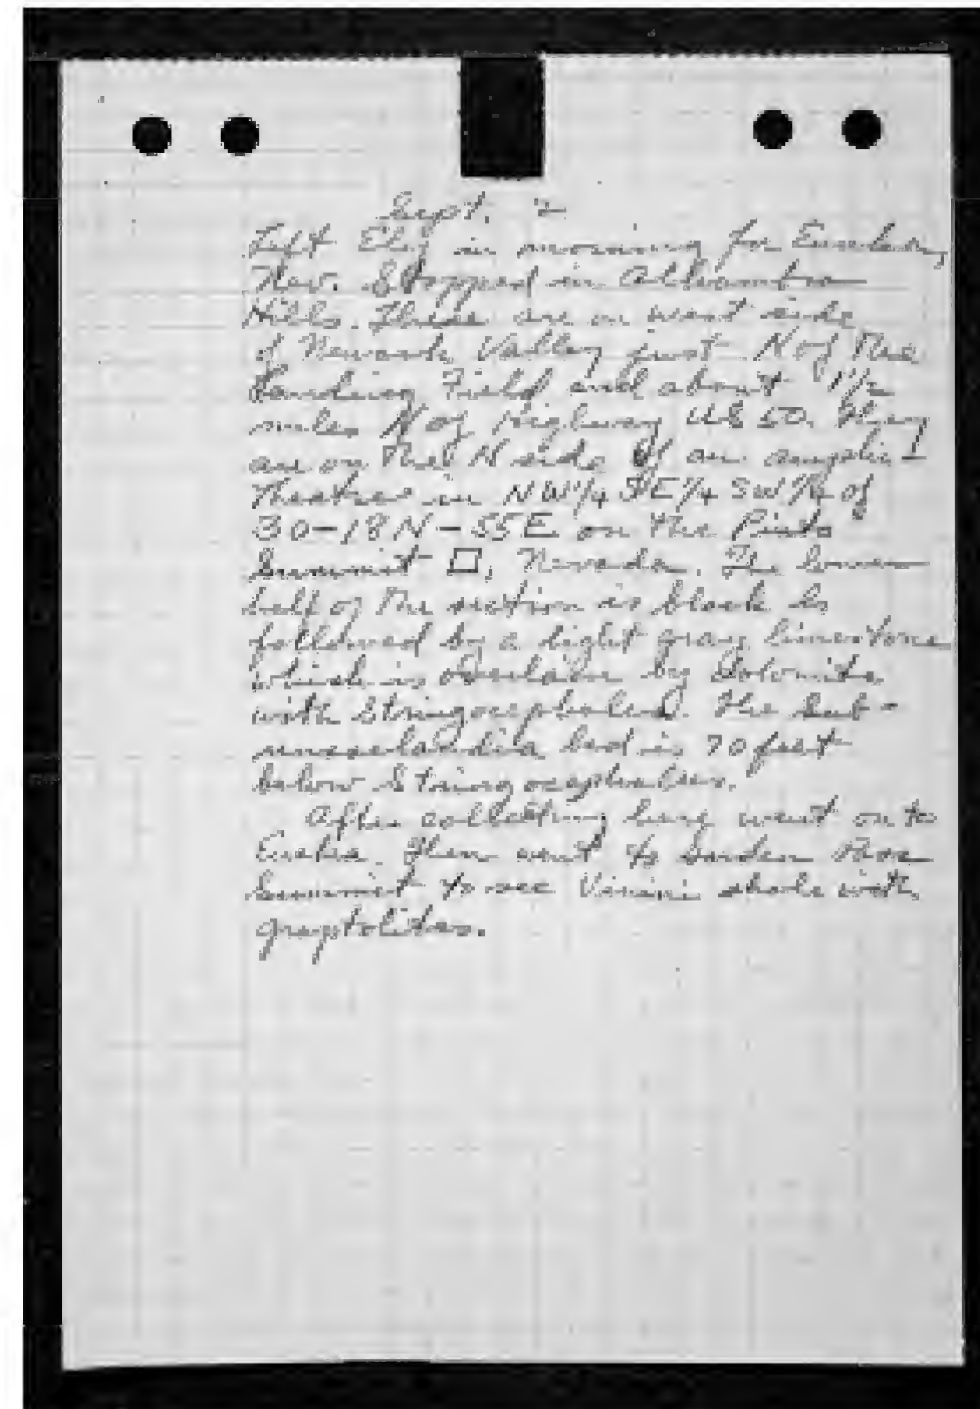 Sept. 2
Left Ely in morning for Eureka,
Nev. Stopped in Alhambra
Hills. These are on west side
of Newark Valley just N of the
Landing Field and about 1 1/2
miles N of Highway US 50. They
are on the N side of an amphi-
theatre in NW 1/4 SE 1/4 SW 1/4 of
30-18N-55E on the Pinto
Summit □, Nevada. The lower
half of the section is black ls
followed by a light gray limestone
which is overlain by dolomite
with Stringocephalus. The Sub-
rensselandia bed is 70 feet
below Stringocephalus.
After collecting here went on to
Eureka. Then went to Garden Pass
Summit to see Vinini shale with
graptolites.